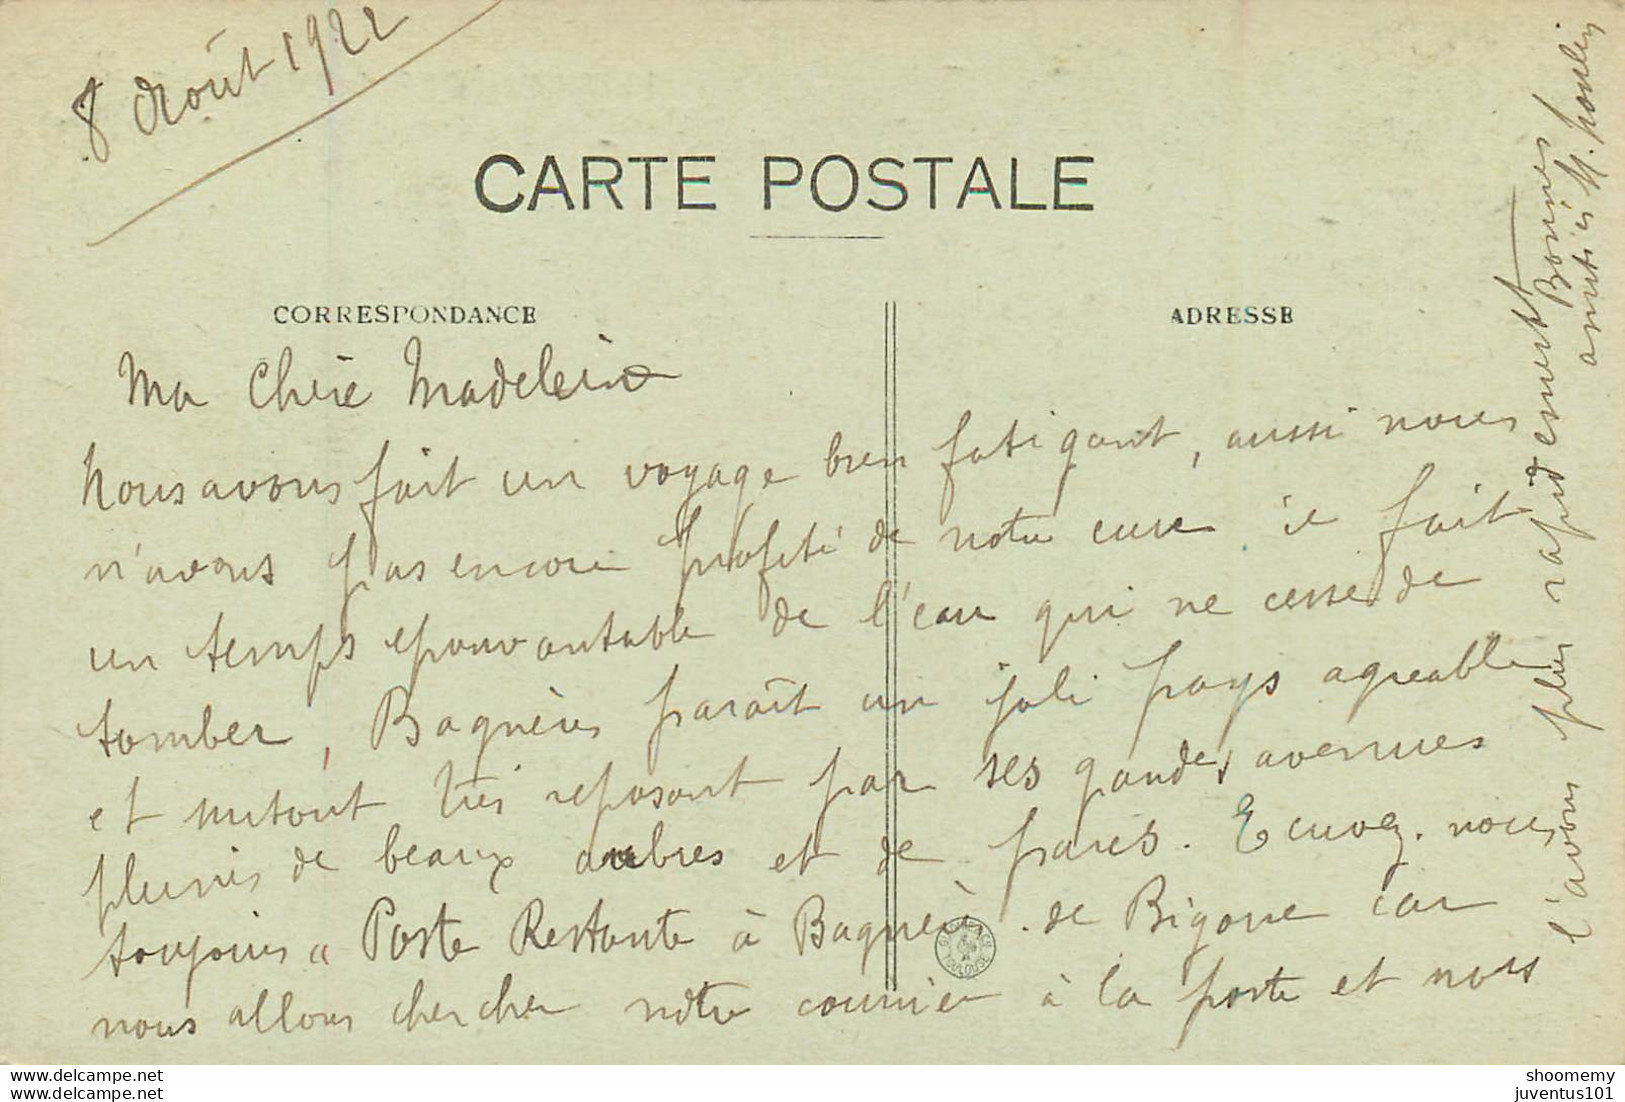 8 Août 1922
CARTE POSTALE
CORRESPONDANCE
ADRESSE
Ma Chère Madeleine
Nous avons fait un voyage bien fatigant, aussi nous
n'avons pas encore profité de notre cure il fait
un temps epouvantable de l'eau qui ne cesse de
tomber, Bagnères paraît un joli pays agreable
et surtout très reposant par ses grandes avenues
pleines de beaux arbres et de parcs. Ecrivez-nous
toujours " Poste Restante à Bagnères-de Bigorre car
nous allons chercher notre courrier à la poste et nous
l'avons plus rapidement
Bonnes
amitiés M.
TOULOUSE
shoomemy
www.delcampe.net
juventus101